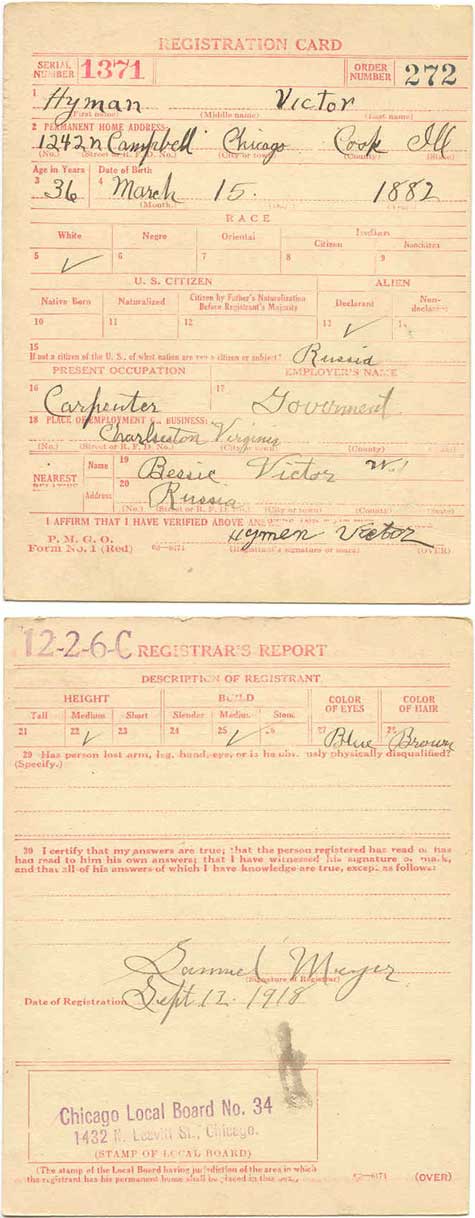 REGISTRATION CARD
SERIAL NUMBER 1371 ORDER NUMBER 272
1 Hyman Victor
(First name) (Middle name) (Last name)
2 PERMANENT HOME ADDRESS:
1242 N Campbell Chicago Cook Ill
(No.) (Street or R. F. D. No.) (City or town) (County) (State)
Age in Years Date of Birth:
3 36 4 March 15. 1882
(Month.) (Year.)
RACE
White Negro Oriental Indian
Citizen Noncitizen
5 ✓ 6 7 8 9
U. S. CITIZEN ALIEN
Native Born Naturalized Citizen by Father's Naturalization Before Registrant's Majority Declarant Non-declarant
10 11 12 13 ✓
15
If not a citizen of the U. S., of what nation are you a citizen or subject? Russia
PRESENT OCCUPATION EMPLOYER'S NAME
16 Carpenter 17 Goverment
18 PLACE OF EMPLOYMENT OR BUSINESS:
Charlseston Virginia
(No.) (Street or R. F. D. No.) (City or town) (County) (State)
NEAREST RELATIVE Name 19 Bessie Victor
Address 20 Russia
(No.) (Street or R. F. D. No.) (City or town) (County) (State)
I AFFIRM THAT I HAVE VERIFIED ABOVE ANSWERS AND
P. M. G. O.
Form No. 1 (Red) Hymen Victor
(Registrant's signature or mark) (OVER)
12-2-6-C REGISTRAR'S REPORT
DESCRIPTION OF REGISTRANT
HEIGHT BUILD COLOR OF EYES COLOR OF HAIR
Tall Medium Short Slender Medium Stout
21 22 ✓ 23 24 25 ✓ 26 27 Blue 28 Brown
29 Has person lost arm, leg, hand, eye, or is he obviously physically disqualified?
(Specify.)
30 I certify that my answers are true; that the person registered has read or has
had read to him his own answers; that I have witnessed his signature or mark,
and that all of his answers of which I have knowledge are true, except as follows:
Samuel Meyer
(Signature of Registrar)
Date of Registration Sept 12. 1918
Chicago Local Board No. 34
1432 N. Leavitt St., Chicago.
(STAMP OF LOCAL BOARD)
(The stamp of the Local Board having jurisdiction of the area in which
the registrant has his permanent home shall be placed in this box.) (OVER)